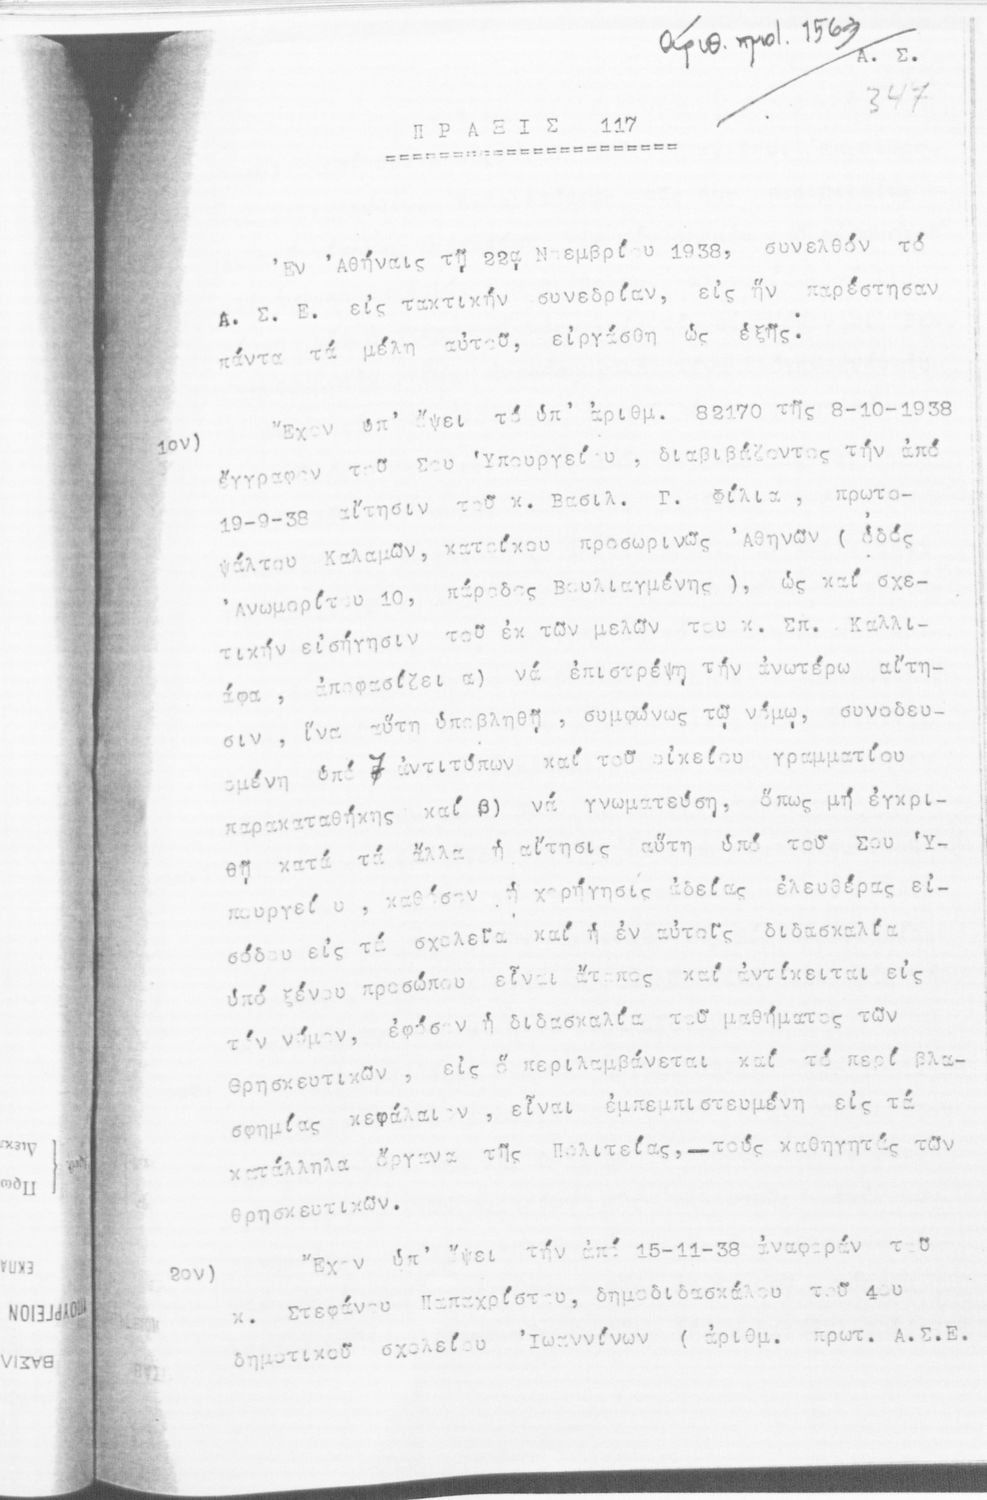 ἀριθ. πρωτ. 1563
Α. Σ.
347
Π Ρ Α Ξ Ι Σ 117
======================
Ἐν Ἀθήναις τῇ 22ᾳ Νοεμβρίου 1938, συνελθόν τό
Α. Σ. Ε. εἰς τακτικήν συνεδρίαν, εἰς ἥν παρέστησαν
πάντα τά μέλη αὐτοῦ, εἰργάσθη ὡς ἑξῆς:
1ον) Ἔχον ὑπ' ὄψει τό ὑπ' ἀριθμ. 82170 τῆς 8-10-1938
ἔγγραφον τοῦ Σου Ὑπουργείου, διαβιβάζοντος τήν ἀπό
19-9-38 αἴτησιν τοῦ κ. Βασιλ. Γ. Φίλια, πρωτο-
ψάλτου Καλαμῶν, κατοίκου προσωρινῶς Ἀθηνῶν ( ὁδός
Ἀνωμορίτου 10, πάροδος Βουλιαγμένης ), ὡς καί σχε-
τικήν εἰσήγησιν τοῦ ἐκ τῶν μελῶν του κ. Σπ. Καλλι-
άφα, ἀποφασίζει α) νά ἐπιστρέψῃ τήν ἀνωτέρω αἴτη-
σιν, ἵνα αὕτη ὑποβληθῇ, συμφώνως τῷ νόμῳ, συνοδευ-
ομένη ὑπό 7 ἀντιτύπων καί τοῦ οἰκείου γραμματίου
παρακαταθήκης καί β) νά γνωματεύσῃ, ὅπως μή ἐγκρι-
θῇ κατά τά ἄλλα ἡ αἴτησις αὕτη ὑπό τοῦ Σου Ὑ-
πουργείου, καθόσον ἡ χορήγησις ἀδείας ἐλευθέρας εἰ-
σόδου εἰς τά σχολεῖα καί ἡ ἐν αὐτοῖς διδασκαλία
ὑπό ξένου προσώπου εἶναι ἄτοπος καί ἀντίκειται εἰς
τόν νόμον, ἐφόσον ἡ διδασκαλία τοῦ μαθήματος τῶν
Θρησκευτικῶν, εἰς ὅ περιλαμβάνεται καί τό περί βλα-
σφημίας κεφάλαιον, εἶναι ἐμπεμπιστευμένη εἰς τά
κατάλληλα ὄργανα τῆς Πολιτείας,—τούς καθηγητάς τῶν
θρησκευτικῶν.
2ον) Ἔχον ὑπ' ὄψει τήν ἀπό 15-11-38 ἀναφοράν τοῦ
κ. Στεφάνου Παπαχρίστου, δημοδιδασκάλου τοῦ 4ου
δημοτικοῦ σχολείου Ἰωαννίνων ( ἀριθμ. πρωτ. Α.Σ.Ε.
ΒΑΣΙΛ
ΥΠΟΥΡΓΕΙΟΝ
ΕΚΠΑ
Πρω
Διεκ